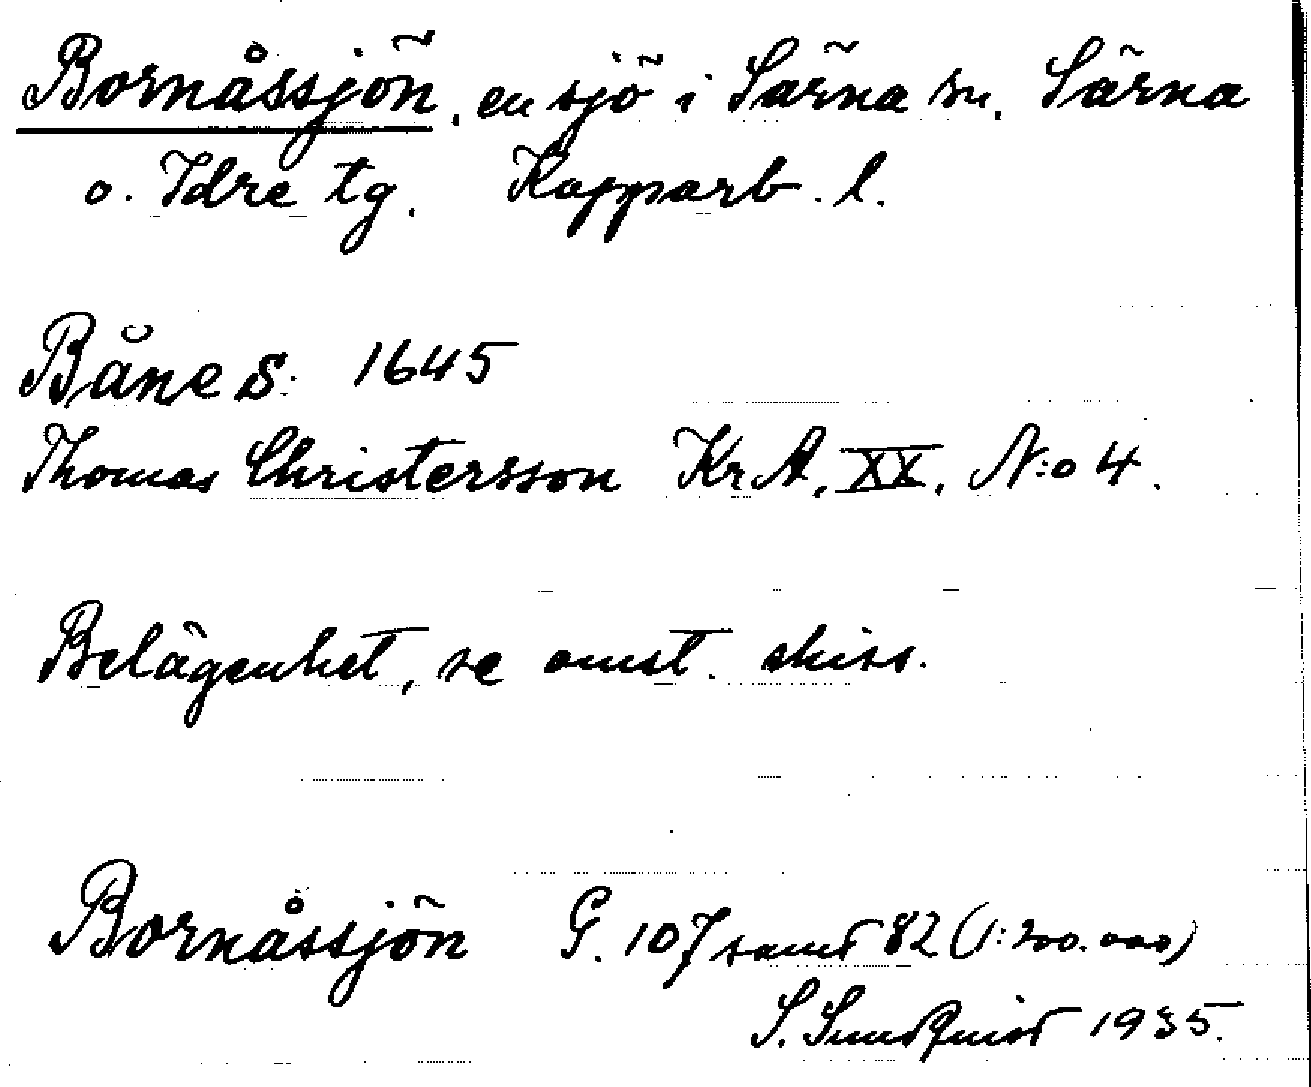 Bornåssjön, en sjö i Särna sn. Särna
o. Idre tg. Kopparb. l.
Båne S: 1645
Thomas Christersson KrA, XX, N:o 4.
Belägenhet, se omst. skiss.
Bornåssjön G. 107 samt 82 (1:200.000)
S. Sundquist 1935.